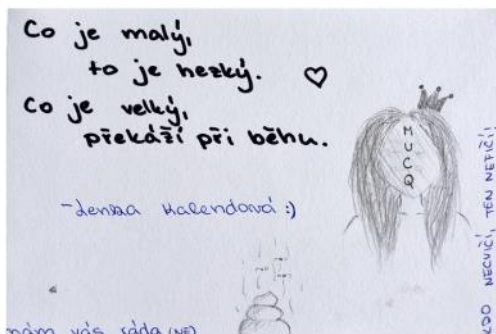 Co je malý,
to je hezký. ♡
Co je velký,
překáží při běhu.
-Lenka Kalendová :)
MUCQ
KDO NECVIČÍ, TEN NEFIČÍ!
mám vás ráda (NE)